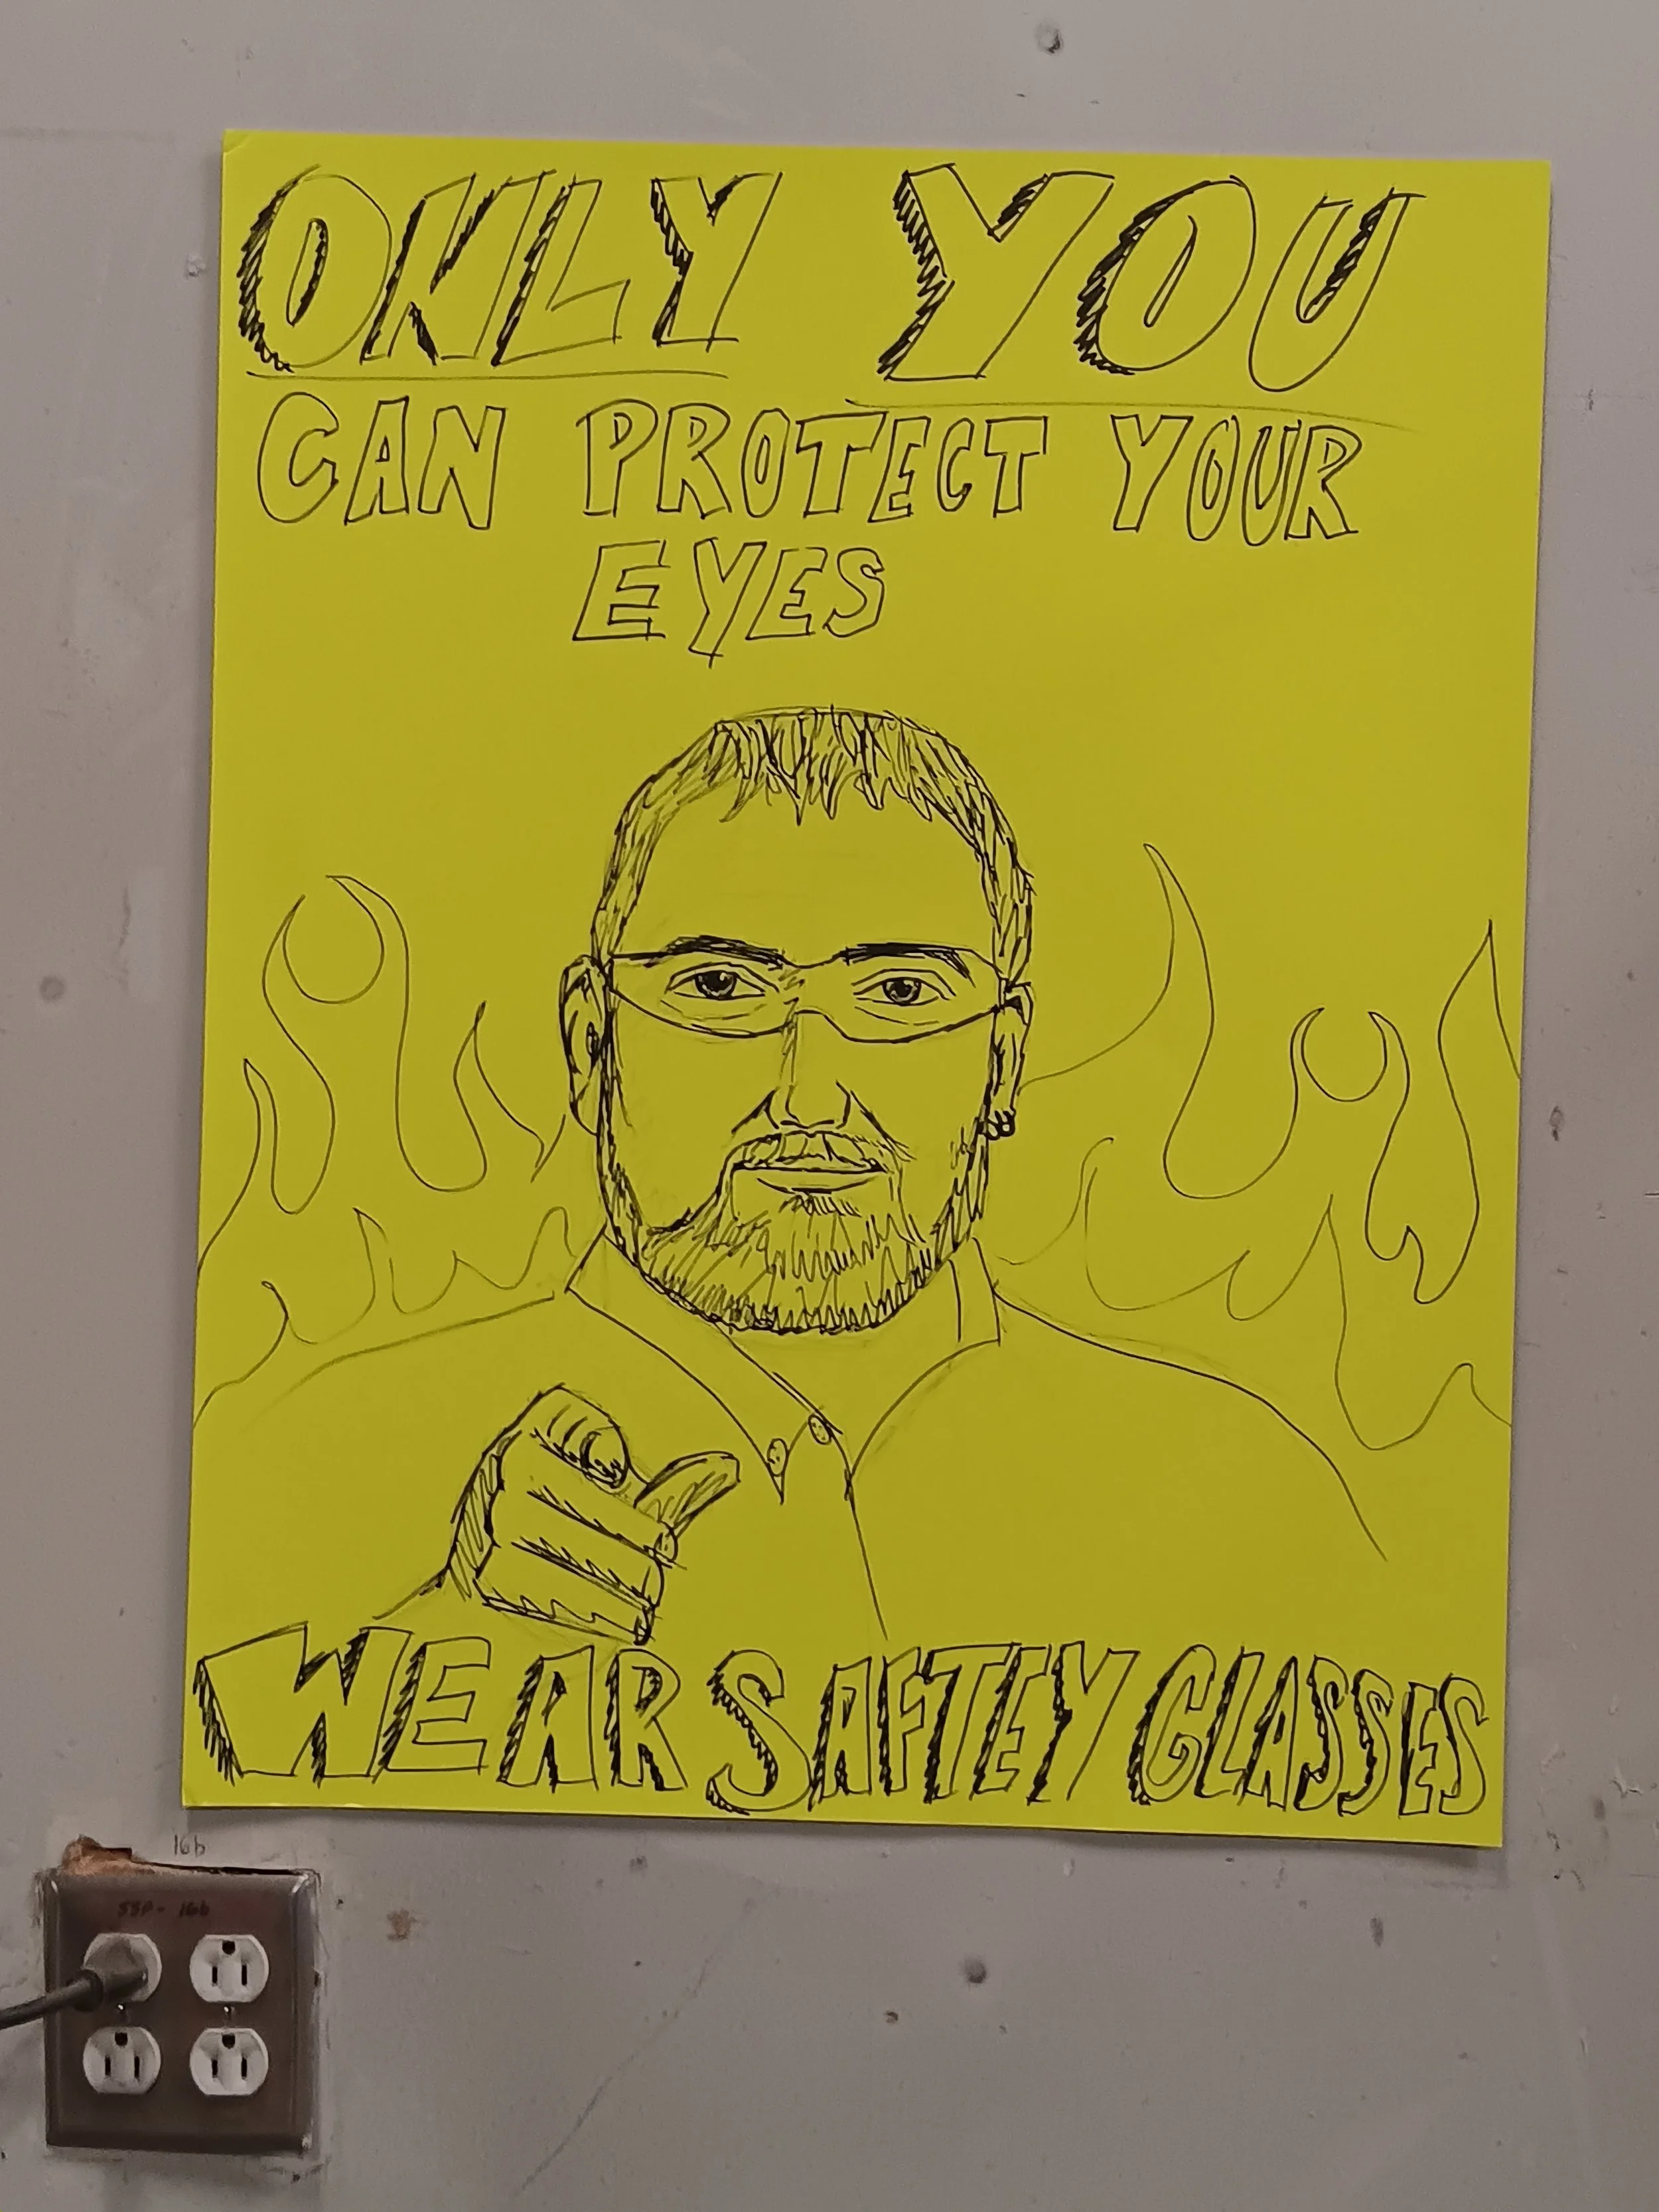 ONLY YOU
CAN PROTECT YOUR
EYES
WEAR SAFTEY GLASSES
16b
SSP- 16b